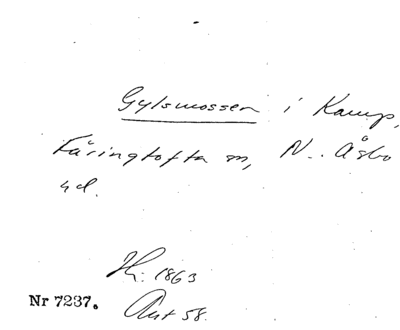 Gylsmossen i Kamp,
Färingtofta sn, N. Åsbo
hd.
Hj. 1863
Nr 7237. Ant 58.